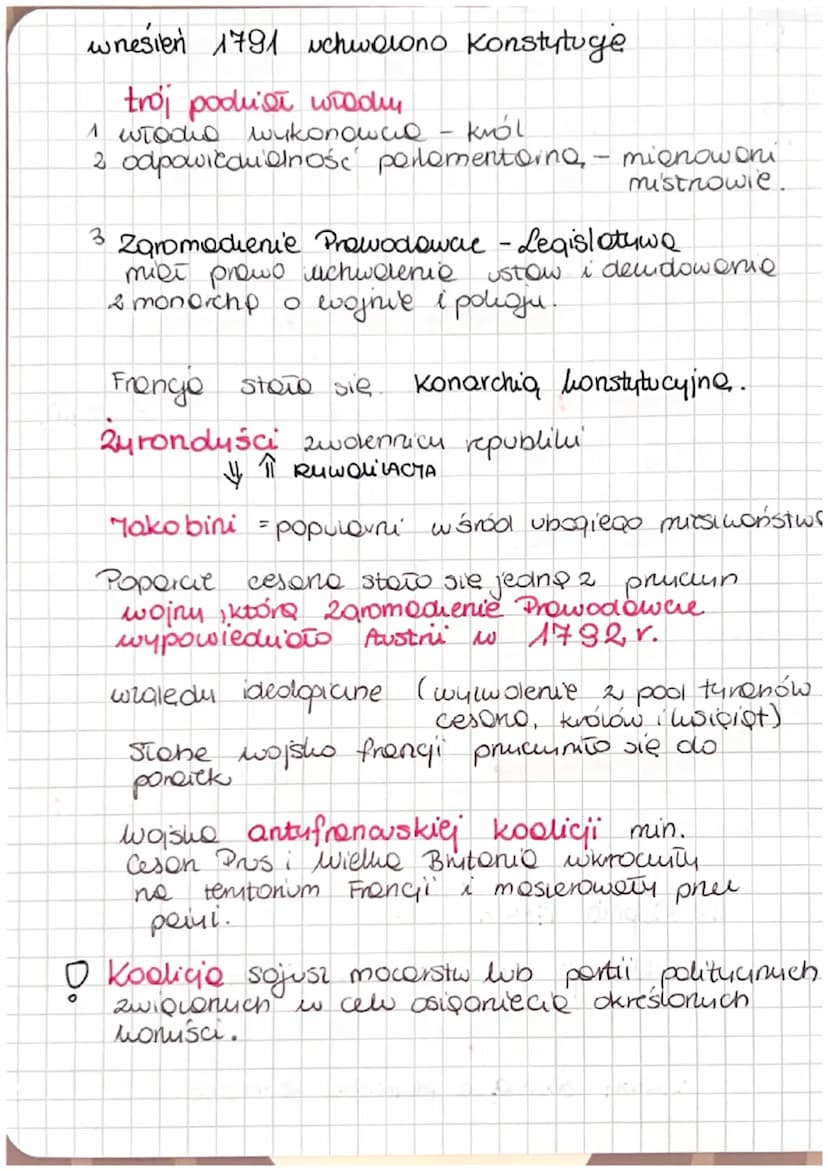 wrzesień 1791 uchwalono Konstytucję
trój podział władzy
1 władza wykonawcza - król
2 odpowiedzialność parlamentarna, - mianowani
mistrowie.
3 Zgromadzenie Prawodawcze - Legislatywa
miał prawo uchwalenie ustaw i decydowania
z monarchą o wojnie i pokoju.
Francja stała się Konarchią konstytucyjną.
Żyrondyści zwolennicy republiki
⇓ ⇑ RYWALIZACJA
Jakobini = popularni wśród ubogiego mieszkaństwa
Poparcie cesarza stało się jedną z przyczyn
wojny, którą Zgromadzenie Prawodawcze
wypowiedziało Austrii w 1792 r.
względy ideologiczne (wyzwolenie z pod tyranów
cesarza, królów i książąt)
Słabe wojsko francji przyczyniło się do
porażek
Wojska antyfrancuskiej koalicji min.
Cesarz Prus i Wielka Brytania wkroczyły
na terytorium Francji i maszerowały przez
paryż.
! Koalicja sojusz mocarstw lub partii politycznych
związanych w celu osiągnięcia określonych
korzyści.